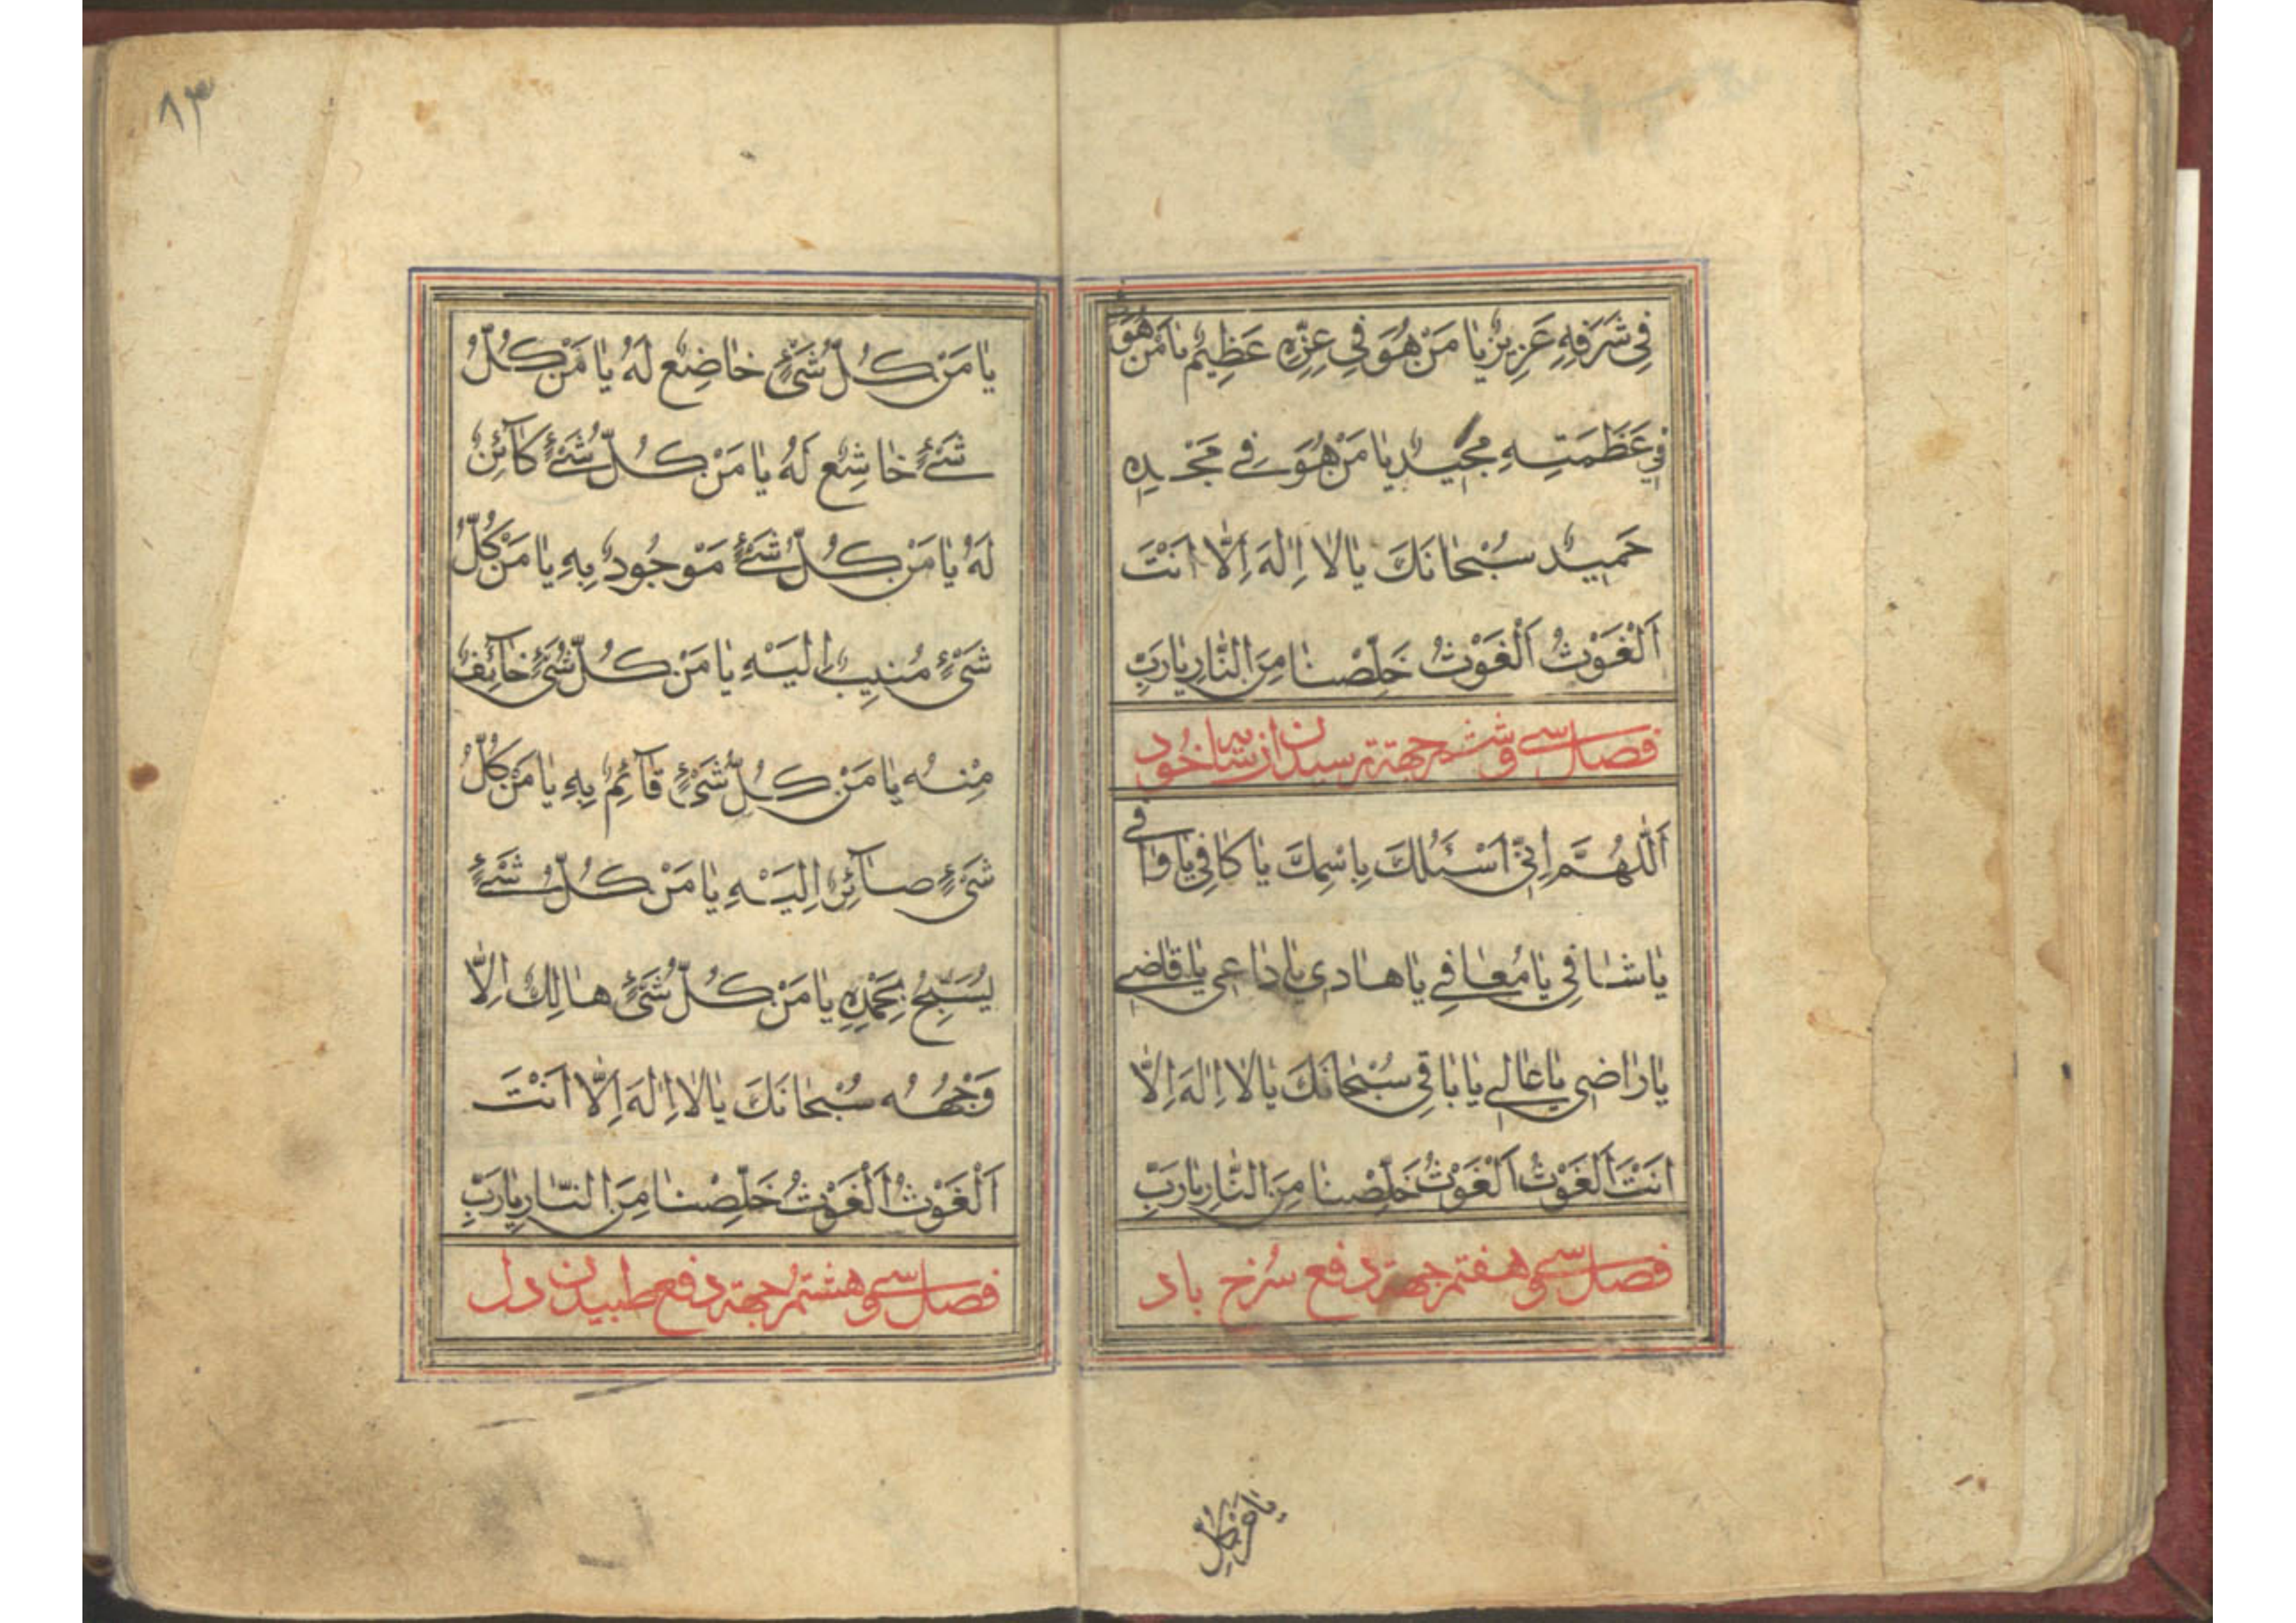 فِي شَرَفِهِ عَزِيزٌ يَا مَنْ هُوَ فِي عِزِّهِ عَظِيمٌ يَا مَنْ هُوَ
فِي عَظَمَتِهِ مَجِيدٌ يَا مَنْ هُوَ فِي مَجْدِهِ
حَمِيدٌ سُبْحَانَكَ يَا لَا إِلٰهَ إِلَّا أَنْتَ
اَلْغَوْثُ اَلْغَوْثُ خَلِّصْنَا مِنَ النَّارِ يَا رَبِّ
فصل سی و ششم جهة ترسیدن از سایه خود
اَللّٰهُمَّ اِنِّي اَسْئَلُكَ بِاسْمِكَ يَا كَافِي يَا وَافِي
يَا شَافِي يَا مُعَافِي يَا هَادِي يَا دَاعِي يَا قَاضِي
يَا رَاضِي يَا عَالِي يَا بَاقِي سُبْحَانَكَ يَا لَا اِلٰهَ اِلَّا
اَنْتَ اَلْغَوْثُ اَلْغَوْثُ خَلِّصْنَا مِنَ النَّارِ يَا رَبِّ
فصل سی و هفتم جهة دفع سُرخ باد
يا من كلّ
٨٣
يَا مَنْ كُلُّ شَيْءٍ خَاضِعٌ لَهُ يَا مَنْ كُلُّ
شَيْءٍ خَاشِعٌ لَهُ يَا مَنْ كُلُّ شَيْءٍ كَآئِنٌ
لَهُ يَا مَنْ كُلُّ شَيْءٍ مَوْجُودٌ بِهِ يَا مَنْ كُلُّ
شَيْءٍ مُنِيبٌ اِلَيْهِ يَا مَنْ كُلُّ شَيْءٍ خَآئِفٌ
مِنْهُ يَا مَنْ كُلُّ شَيْءٍ قَآئِمٌ بِهِ يَا مَنْ كُلُّ
شَيْءٍ صَآئِرٌ اِلَيْهِ يَا مَنْ كُلُّ شَيْءٍ
يُسَبِّحُ بِحَمْدِهِ يَا مَنْ كُلُّ شَيْءٍ هَالِكٌ اِلَّا
وَجْهُهُ سُبْحَانَكَ يَا لَا اِلٰهَ اِلَّا اَنْتَ
اَلْغَوْثُ اَلْغَوْثُ خَلِّصْنَا مِنَ النَّارِ يَا رَبِّ
فصل سی و هشتم جهة دفع طبیدن دل